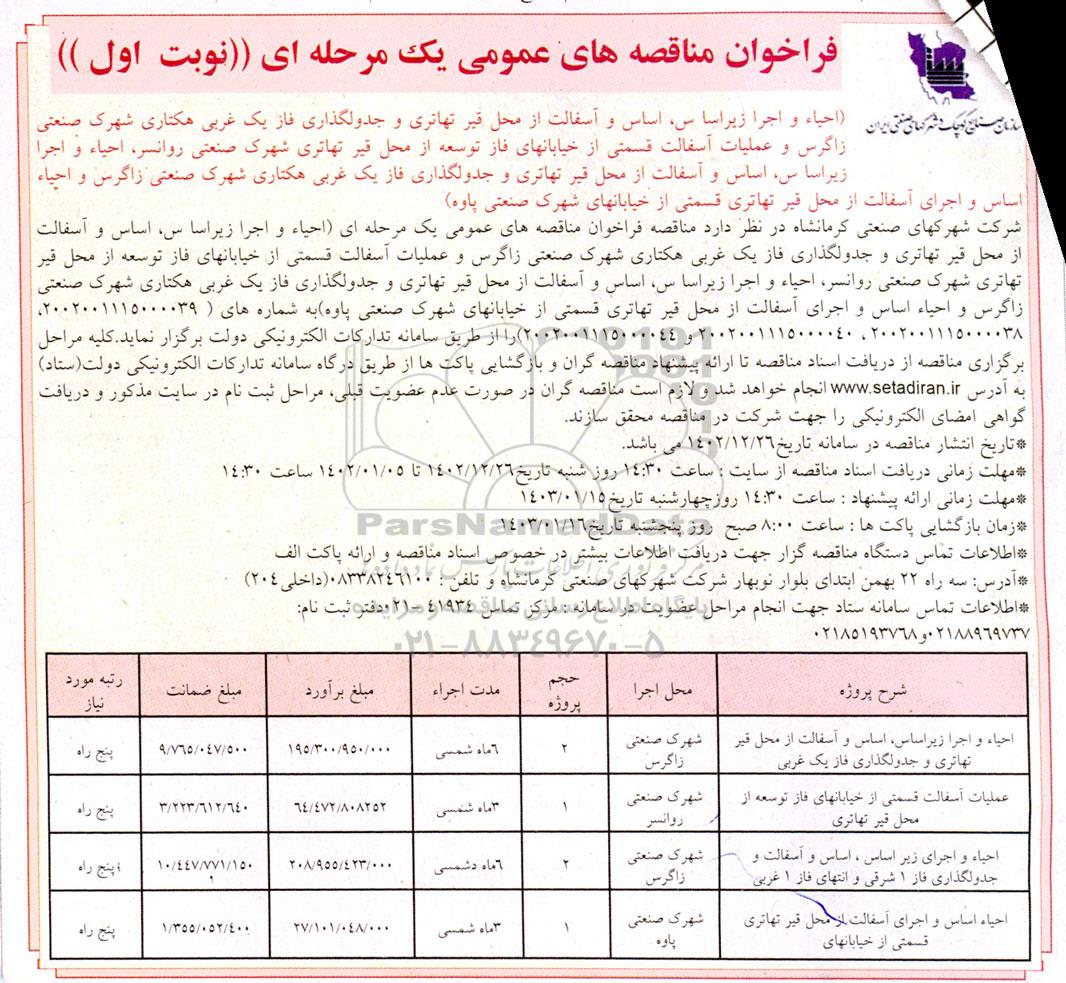 فراخوان مناقصه های عمومی یک مرحله ای ((نوبت اول ))
سازمان صنایع کوچک و شهرکهای صنعتی ایران
(احیاء و اجرا زیراسا س، اساس و آسفالت از محل قیر تهاتری و جدولگذاری فاز یک غربی هکتاری شهرک صنعتی
زاگرس و عملیات آسفالت قسمتی از خیابانهای فاز توسعه از محل قیر تهاتری شهرک صنعتی روانسر، احیاء و اجرا
زیراسا س، اساس و آسفالت از محل قیر تهاتری و جدولگذاری فاز یک غربی هکتاری شهرک صنعتی زاگرس و احیاء
اساس و اجرای آسفالت از محل قیر تهاتری قسمتی از خیابانهای شهرک صنعتی پاوه)
شرکت شهرکهای صنعتی کرمانشاه در نظر دارد مناقصه فراخوان مناقصه های عمومی یک مرحله ای (احیاء و اجرا زیراسا س، اساس و آسفالت
از محل قیر تهاتری و جدولگذاری فاز یک غربی هکتاری شهرک صنعتی زاگرس و عملیات آسفالت قسمتی از خیابانهای فاز توسعه از محل قیر
تهاتری شهرک صنعتی روانسر، احیاء و اجرا زیراسا س، اساس و آسفالت از محل قیر تهاتری و جدولگذاری فاز یک غربی هکتاری شهرک صنعتی
زاگرس و احیاء اساس و اجرای آسفالت از محل قیر تهاتری قسمتی از خیابانهای شهرک صنعتی پاوه)به شماره های ( ۲۰۰۲۰۰۱۱۱۵۰۰۰۰۳۹،
۲۰۰۲۰۰۱۱۱۵۰۰۰۰۳۸ ، ۲۰۰۲۰۰۱۱۱۵۰۰۰۰۴۰ و ۲۰۰۲۰۰۱۱۱۵۰۰۰۰۴۴)را از طریق سامانه تدارکات الکترونیکی دولت برگزار نماید.کلیه مراحل
برگزاری مناقصه از دریافت اسناد مناقصه تا ارائه پیشنهاد مناقصه گران و بازگشایی پاکت ها از طریق درگاه سامانه تدارکات الکترونیکی دولت(ستاد)
به آدرس www.setadiran.ir انجام خواهد شد و لازم است مناقصه گران در صورت عدم عضویت قبلی، مراحل ثبت نام در سایت مذکور و دریافت
گواهی امضای الکترونیکی را جهت شرکت در مناقصه محقق سازند.
*تاریخ انتشار مناقصه در سامانه تاریخ۱۴۰۲/۱۲/۲۶ می باشد.
*مهلت زمانی دریافت اسناد مناقصه از سایت : ساعت ۱۴:۳۰ روز شنبه تاریخ۱۴۰۲/۱۲/۲۶ تا ۱۴۰۲/۰۱/۰۵ ساعت ۱۴:۳۰
*مهلت زمانی ارائه پیشنهاد : ساعت ۱۴:۳۰ روزچهارشنبه تاریخ۱۴۰۳/۰۱/۱۵
*زمان بازگشایی پاکت ها : ساعت ۸:۰۰ صبح روز پنجشنبه تاریخ۱۴۰۳/۰۱/۱۶
ParsNamadData
*اطلاعات تماس دستگاه مناقصه گزار جهت دریافت اطلاعات بیشتر در خصوص اسناد مناقصه و ارائه پاکت الف
*آدرس: سه راه ۲۲ بهمن ابتدای بلوار نوبهار شرکت شهرکهای صنعتی کرمانشاه و تلفن : ۰۸۳۳۸۲۴۶۱۰۰(داخلی۲۰۴)
*اطلاعات تماس سامانه ستاد جهت انجام مراحل عضویت در سامانه : مرکز تماس ۴۱۹۳۴ -۰۲۱دفتر ثبت نام:
۰۲۱۸۸۹۶۹۷۳۷و۰۲۱۸۵۱۹۳۷۶۸
۰۲۱-۸۸۳۴۹۶۷۰-۵
شرح پروژه محل اجرا حجم پروژه مدت اجراء مبلغ برآورد مبلغ ضمانت رتبه مورد نیاز
احیاء و اجرا زیراساس، اساس و آسفالت از محل قیر تهاتری و جدولگذاری فاز یک غربی شهرک صنعتی زاگرس ۲ ۶ماه شمسی ۱۹۵/۳۰۰/۹۵۰/۰۰۰ ۹/۷۶۵/۰۴۷/۵۰۰ پنج راه
عملیات آسفالت قسمتی از خیابانهای فاز توسعه از محل قیر تهاتری شهرک صنعتی روانسر ۱ ۳ماه شمسی ۶۴/۴۷۲/۸۰۸۲۵۲ ۳/۲۲۳/۶۱۲/۶۴۰ پنج راه
احیاء و اجرای زیر اساس ، اساس و آسفالت و جدولگذاری فاز ۱ شرقی و انتهای فاز ۱ غربی شهرک صنعتی زاگرس ۲ ۶ماه دشمسی ۲۰۸/۹۵۵/۴۲۳/۰۰۰ ۱۰/۴۴۷/۷۷۱/۱۵۰ پنج راه
احیاء اساس و اجرای آسفالت از محل قیر تهاتری قسمتی از خیابانهای شهرک صنعتی پاوه ۱ ۳ماه شمسی ۲۷/۱۰۱/۰۴۸/۰۰۰ ۱/۳۵۵/۰۵۲/۴۰۰ پنج راه